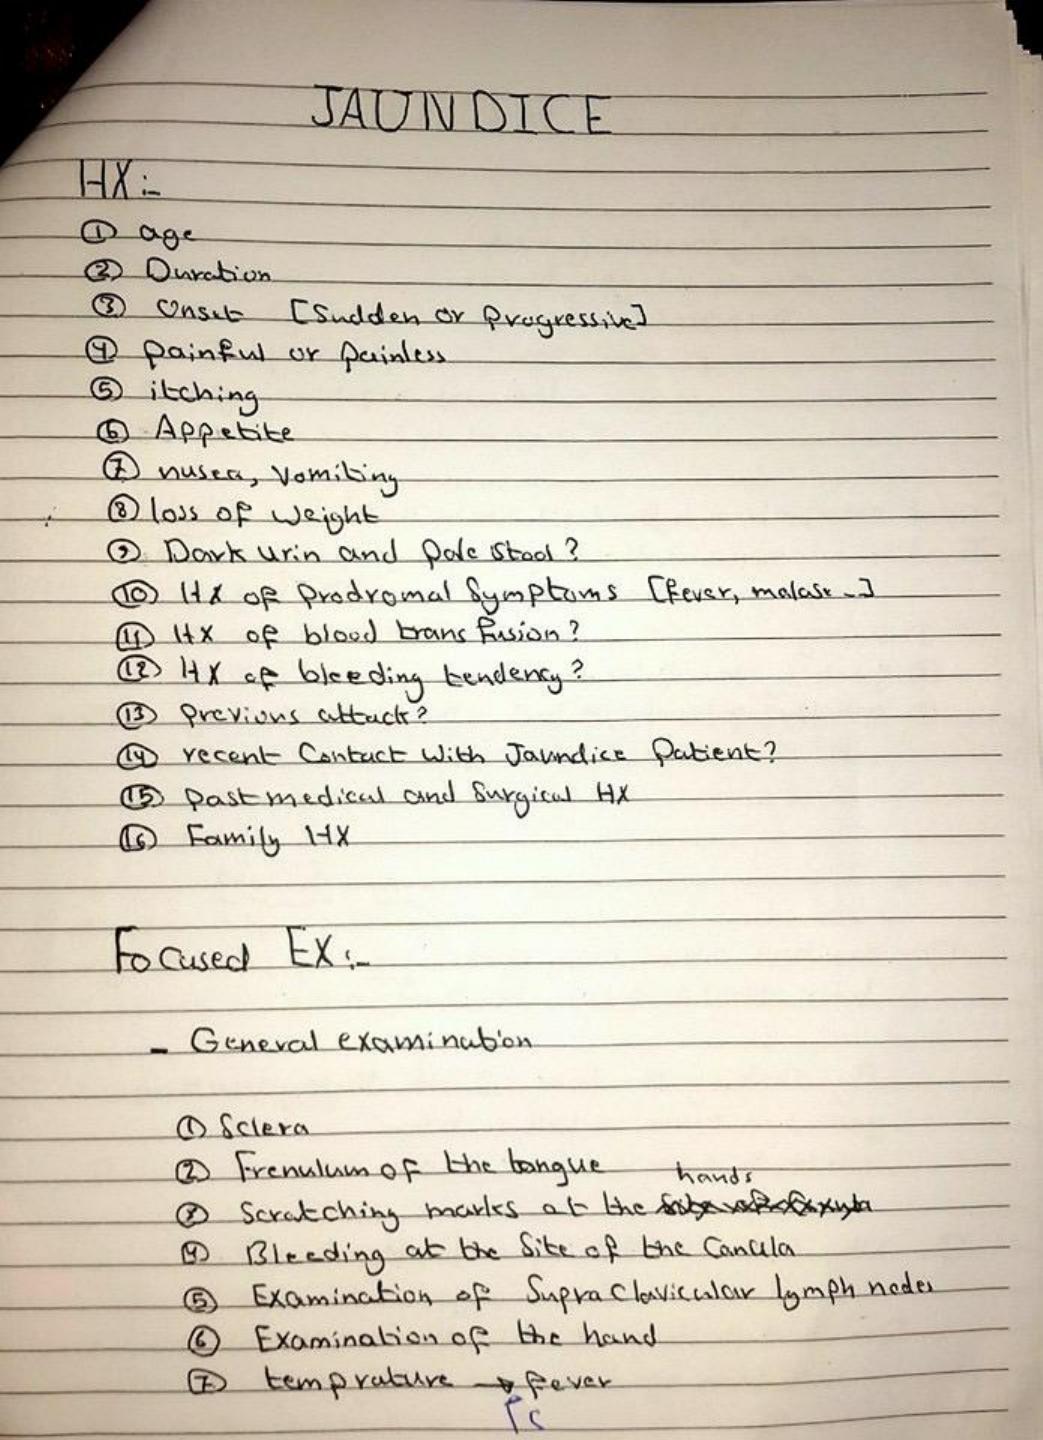 JAUNDICE
HX:-
① age
② Duration
③ Onset [Sudden or Progressive]
④ painful or painless
⑤ itching
⑥ Appetite
⑦ nusea, Vomiting
⑧ loss of weight
⑨ Dark urin and pale stool?
⑩ HX of prodromal Symptoms [fever, malase --]
⑪ HX of blood transfusion?
⑫ HX of bleeding tendency?
⑬ Previous attack?
⑭ recent Contact with Jaundice Patient?
⑮ past medical and Surgical HX
⑯ Family HX
Focused EX:-
- General examination
① Sclera
② Frenulum of the tongue
③ Scratching marks at the hands
④ Bleeding at the Site of the Canula
⑤ Examination of Supraclavicular lymph nodes
⑥ Examination of the hand
⑦ temprature → fever